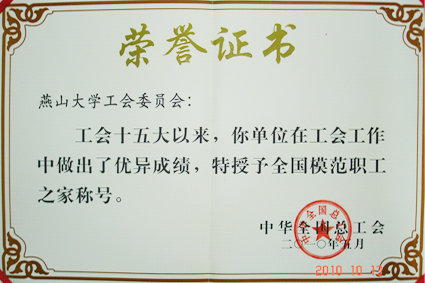 荣誉证书
燕山大学工会委员会：
工会十五大以来，你单位在工会工作
中做出了优异成绩，特授予全国模范职工
之家称号。
中华全国总工会
二〇一〇年五月
中华全国总工会